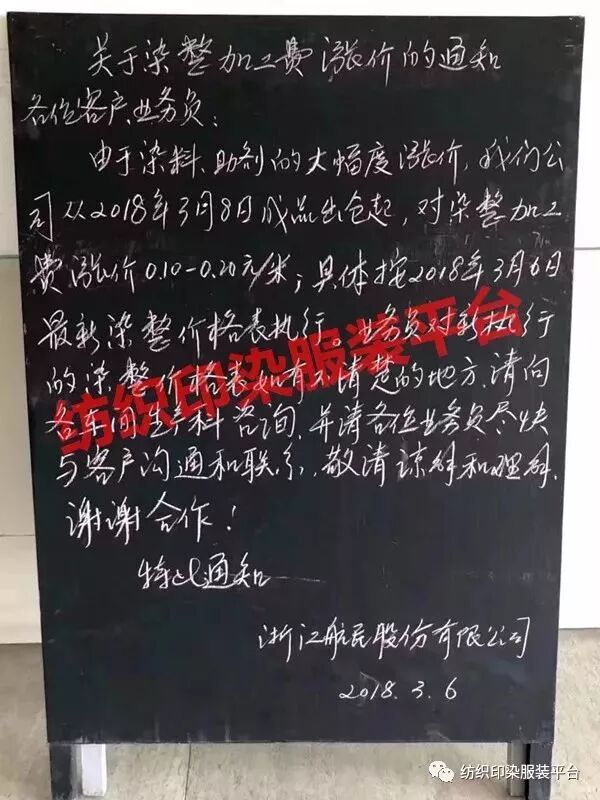 关于染整加工费涨价的通知
各位客户、业务员:
由于染料、助剂的大幅度涨价,我们公
司从2018年3月8日成品出仓起,对染整加工
费涨价0.10-0.20元/米;具体按2018年3月6日
最新染整价格表执行。业务员对新执行
的染整价格表如有不清楚的地方,请向
各车间生产科咨询,并请各位业务员尽快
与客户沟通和联系,敬请谅解和理解,
谢谢合作!
特此通知
浙江航民股份有限公司
2018.3.6
纺织印染服装平台
纺织印染服装平台